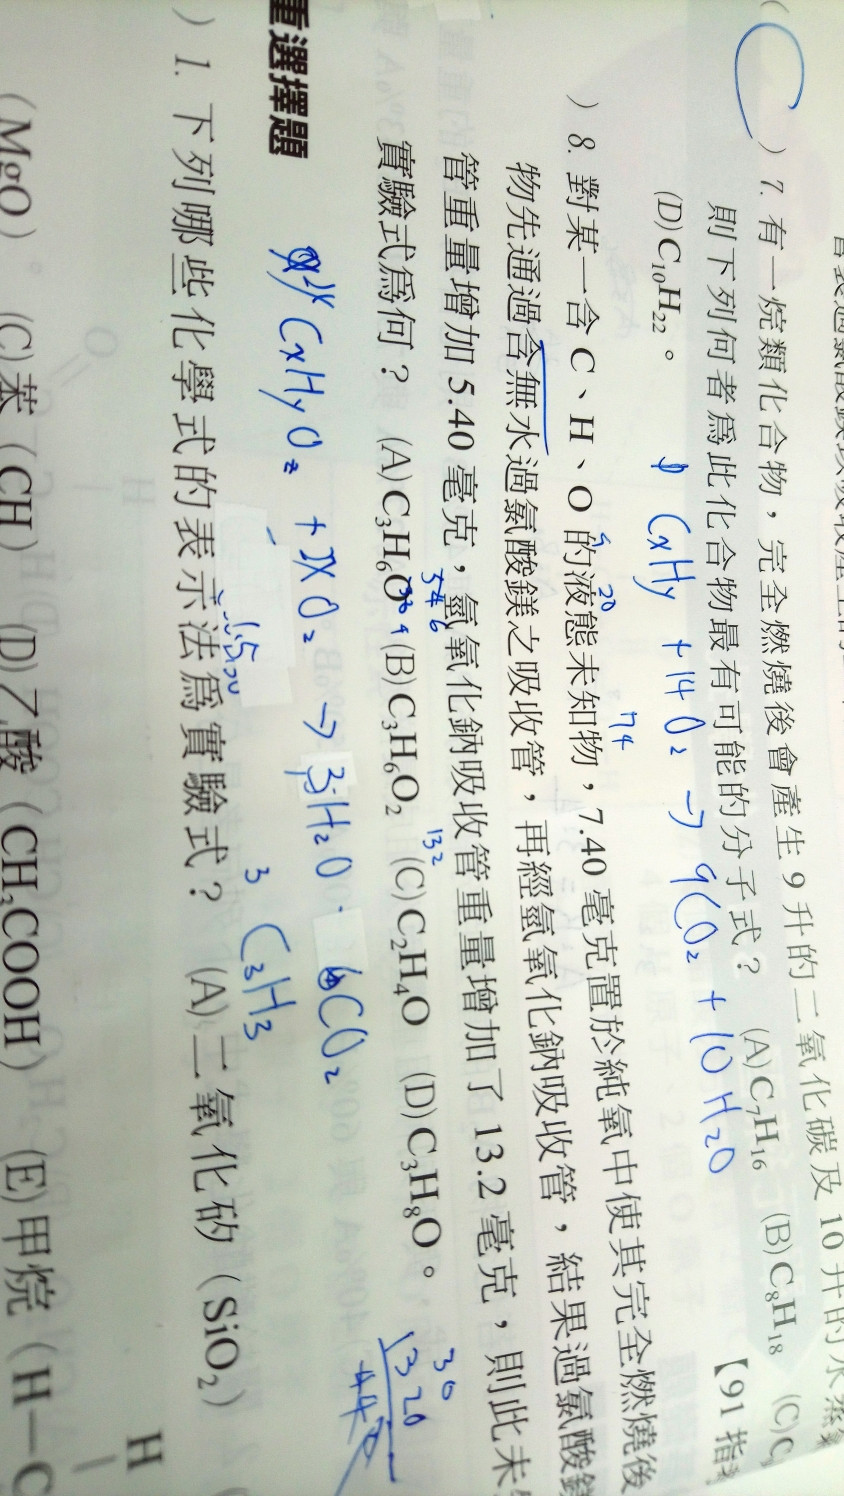 ) 7. 有一烷類化合物，完全燃燒後會產生9升的二氧化碳及10升的水蒸
則下列何者為此化合物最有可能的分子式？ (A)C₇H₁₆ (B)C₈H₁₈ (C)C
(D)C₁₀H₂₂。 【91指
CxHy + 14O₂ → 9CO₂ + 10H₂O
) 8. 對某一含C、H、O的液態未知物，7.40毫克置於純氧中使其完全燃燒後
物先通過含無水過氯酸鎂之吸收管，再經氫氧化鈉吸收管，結果過氯酸鎂
管重量增加5.40毫克，氫氧化鈉吸收管重量增加了13.2毫克，則此未
實驗式為何？ (A)C₃H₆O (B)C₃H₆O₂ (C)C₂H₄O (D)C₃H₈O。
20
74
132
30
1320
CxHyO₂ + O₂ → 3H₂O CO₂
3
C₃H₃
重選擇題
) 1. 下列哪些化學式的表示法為實驗式？ (A)二氧化矽（SiO₂）
（MgO）。 (C)苯（CH） (D)乙酸（CH₃COOH） (E)甲烷（H－C
H